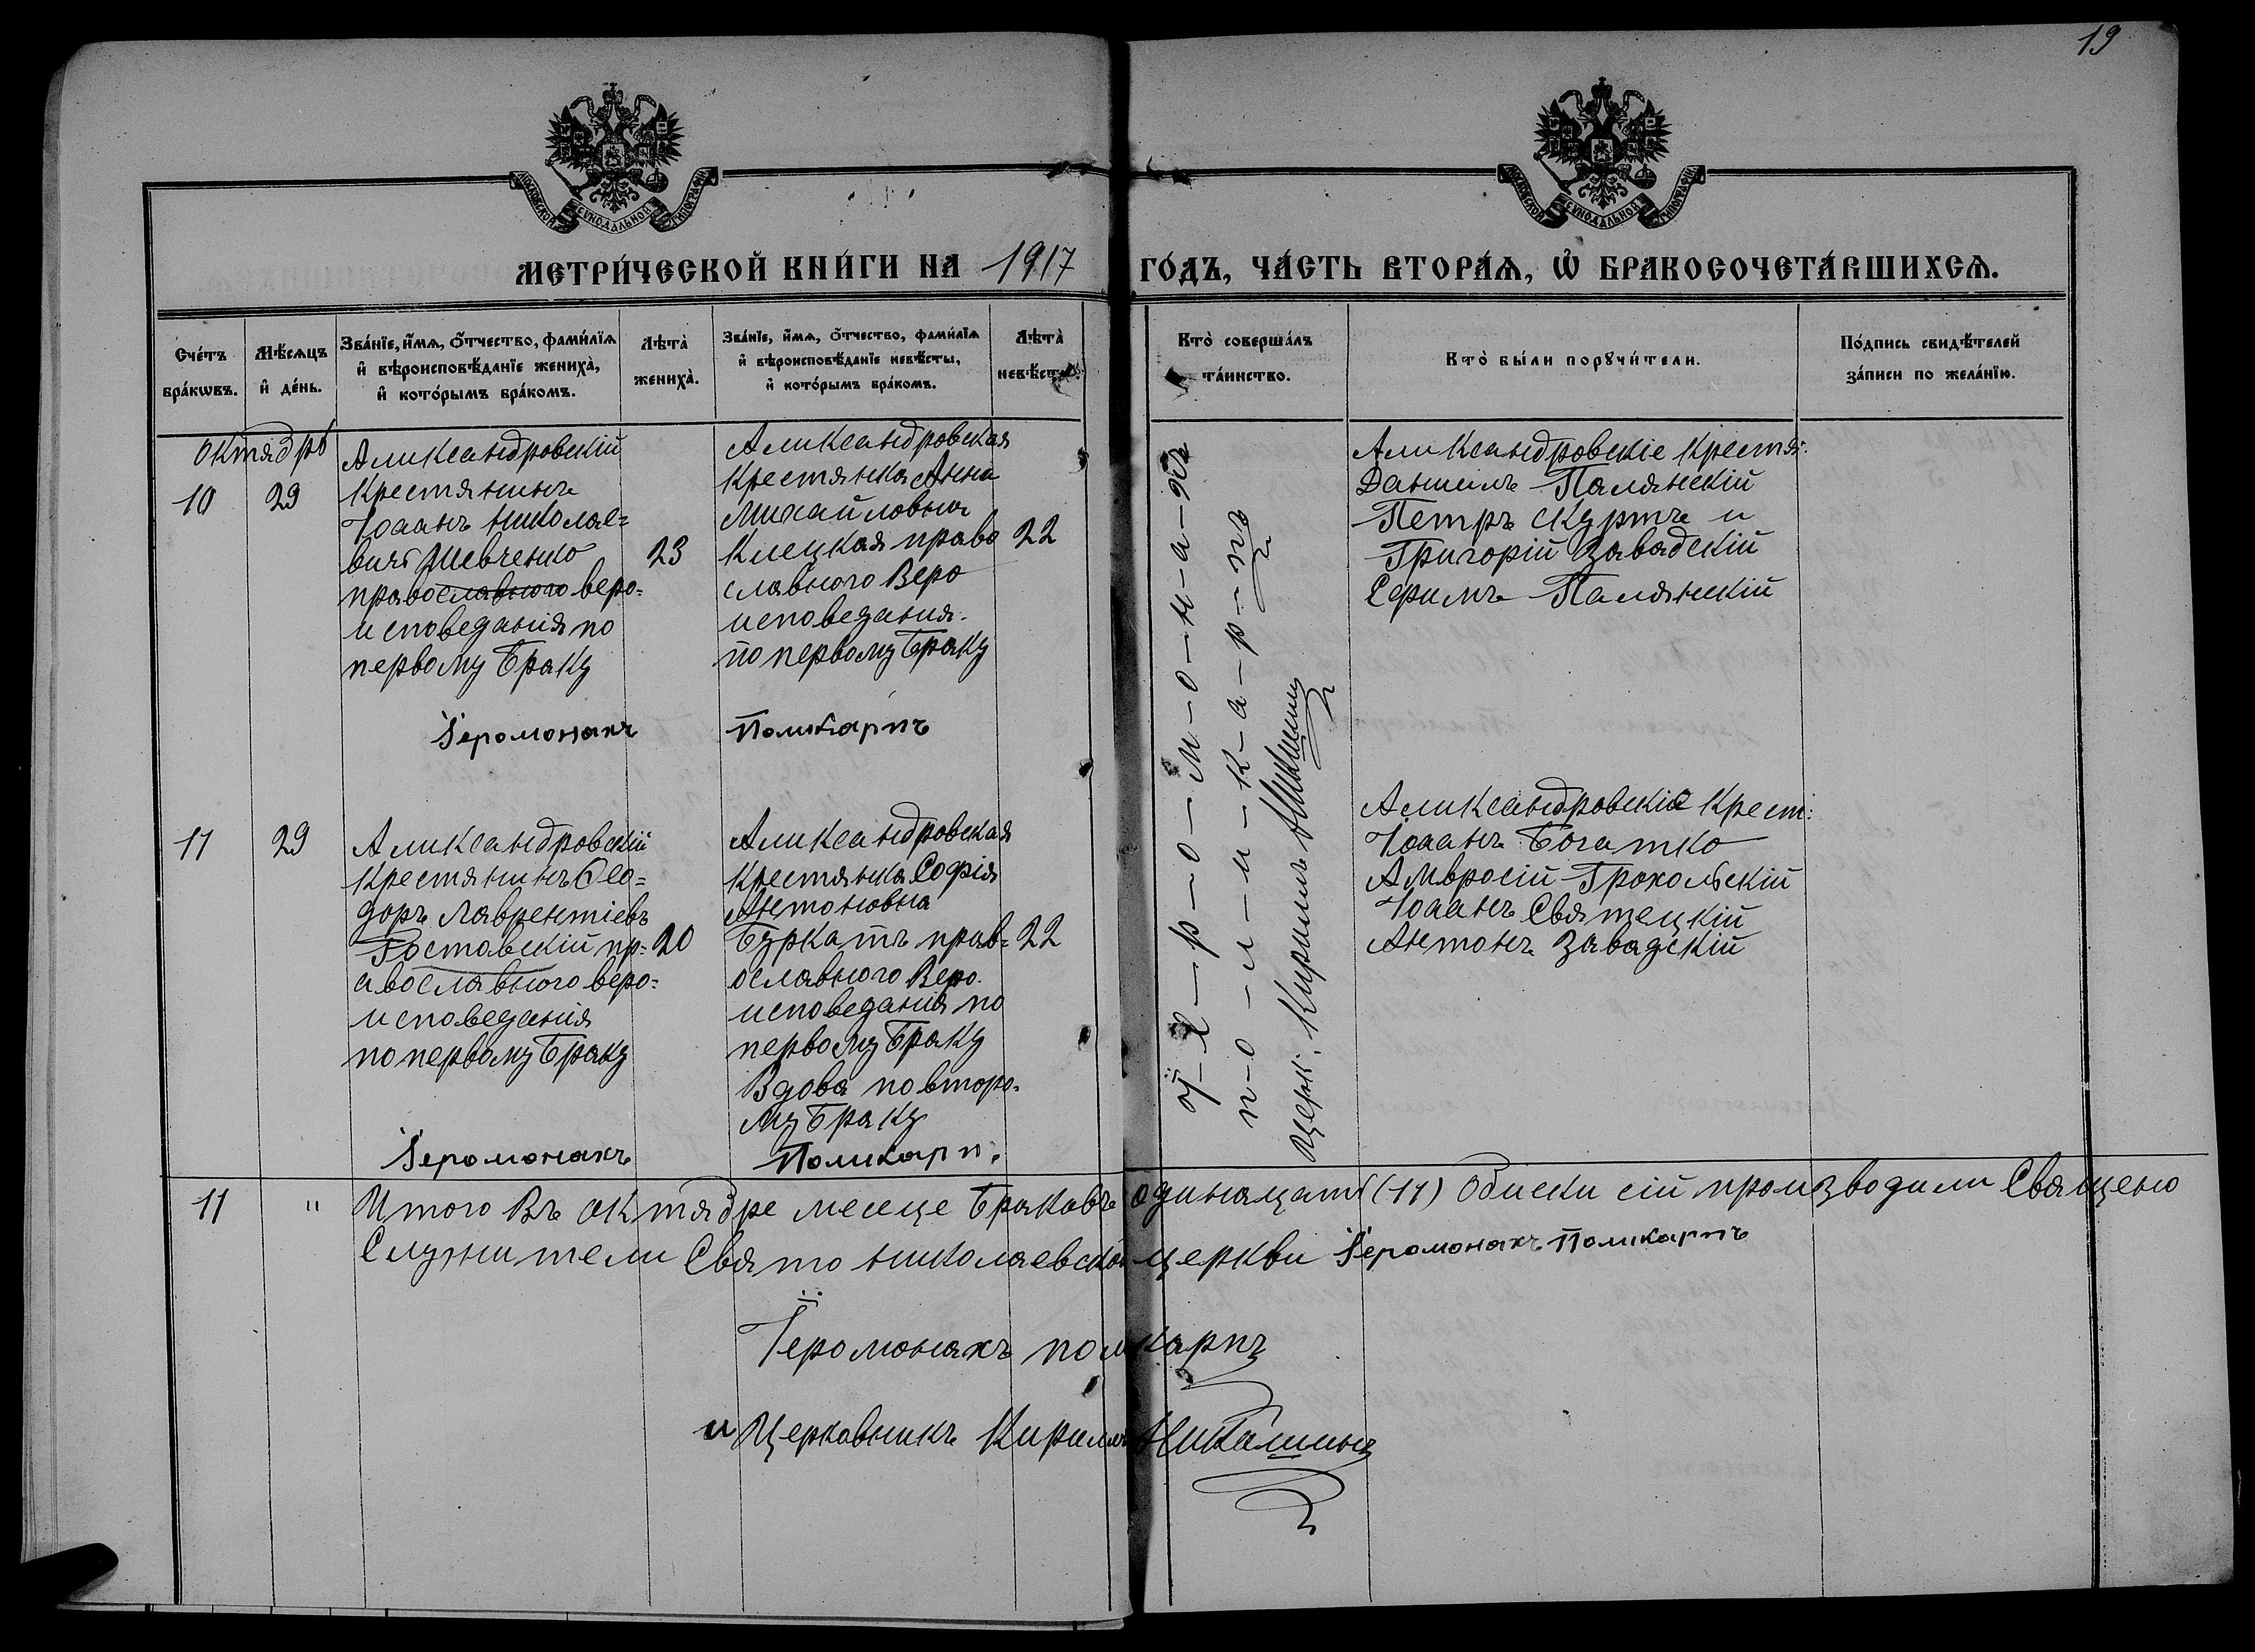 19
МОСКОВСКОЙ СѴНОДАЛЬНОЙ ТИПОГРАФІИ
МОСКОВСКОЙ СѴНОДАЛЬНОЙ ТИПОГРАФІИ
МЕТРИ́ЧЕСКОЙ КНИ́ГИ НА 1917 ГО́ДЪ, ЧА́СТЬ ВТОРА́Ѧ, Ѡ҆ БРАКОСОЧЕТА́ВШИХСѦ.
Сче́тъ бра́кѡвъ.
Мѣ́сѧцъ и҆ де́нь.
Зва́нїе, и҆́мѧ, о҆́тчество, фами́лїѧ и҆ вѣроисповѣ́данїе жениха̀, и҆ кото́рымъ бра́комъ.
Лѣта̀ жениха̀.
Зва́нїе, и҆́мѧ, о҆́тчество, фами́лїѧ и҆ вѣроисповѣ́данїе невѣ́сты, и҆ кото́рымъ бра́комъ.
Лѣта̀ невѣ́сты.
Кто̀ соверша́лъ та́инство.
Кто̀ бы́ли порꙋчи́тели.
По́дпись свидѣ́телей за́писи по жела́нїю.
октябрь
10
29
Аликсандровскій
Крестянинъ
Іоаанъ Николае=
вичъ Шевченко
православного веро-
исповеданія по
первому Браку
23
Аликсандровская
Крестянка Анна
Михайловна
Клецкая право
славного Веро
исповедания.
по первому Браку
22
Іеромонахъ Поликарпъ
Аликсандровскіе Крестя:
Даниилъ Палянскій
Петръ Скуртъ и
Григорій Завадскій
Ефимъ Палянскій
11
29
Аликсандровскій
Крестянинъ Ѳео=
доръ Лаврентіевъ
Гоставскій пр-
авославного веро-
исповедания
по первому Браку
20
Аликсандровская
Крестянка Софія
Антоновна
Буркатъ прав=
ославного Веро-
исповеданія по
первому Браку
Вдова по второ-
му Браку
22
Іеромонахъ Поликарп.
Аликсандровскіе Крест:
Іоаанъ Богатко
Амвросій Грохольскій
Іоаанъ Святецкій
Антонъ Завадскій
І-е-р-о-м-о-н-а-хъ
п-о-л-и-к-а-р-пъ
Церк: Кирилъ Никишинъ
11 " Итого Въ октябре месеце Браковъ одинацать (11) Обиски сій производили Священо
Служители Свято Николаевской церкви Іеромонахъ Поликарпъ
Іеромонахъ поликарпъ
и Церковникъ Кирилъ